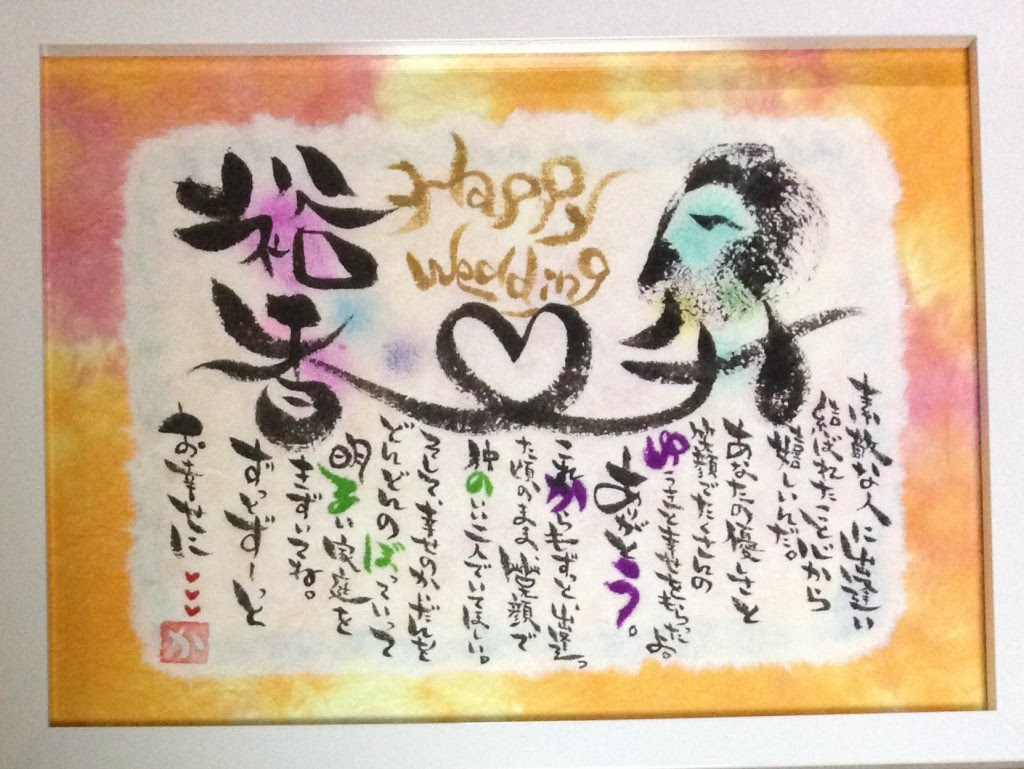 Happy
Wedding
昇
裕香
素敵な人に出逢い
結ばれたこと心から
嬉しいんだ。
あなたの優しさと
笑顔でたくさんの
ゆうきと幸せをもらったよ。
ありがとう。
これからもずっと、出逢っ
た頃のまま、笑顔で
仲のいい二人でいてほしい。
そして、幸せのかいだんを
どんどんのぼっていって
明るい家庭を
きずいてね。
ずっとずーっと
お幸せに
か